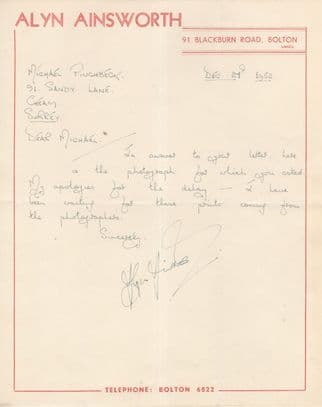 ALYN AINSWORTH
91 BLACKBURN ROAD, BOLTON
LANCS.
MICHAEL PINCHBECK.
91 SANDY LANE.
CHEAM
SURREY.
DEAR MICHAEL
In answer to your letter, here
is the photograph for which you asked
My apologies for the delay — I have
been waiting for these prints coming from
the photographers.
Sincerely,
TELEPHONE: BOLTON 6822